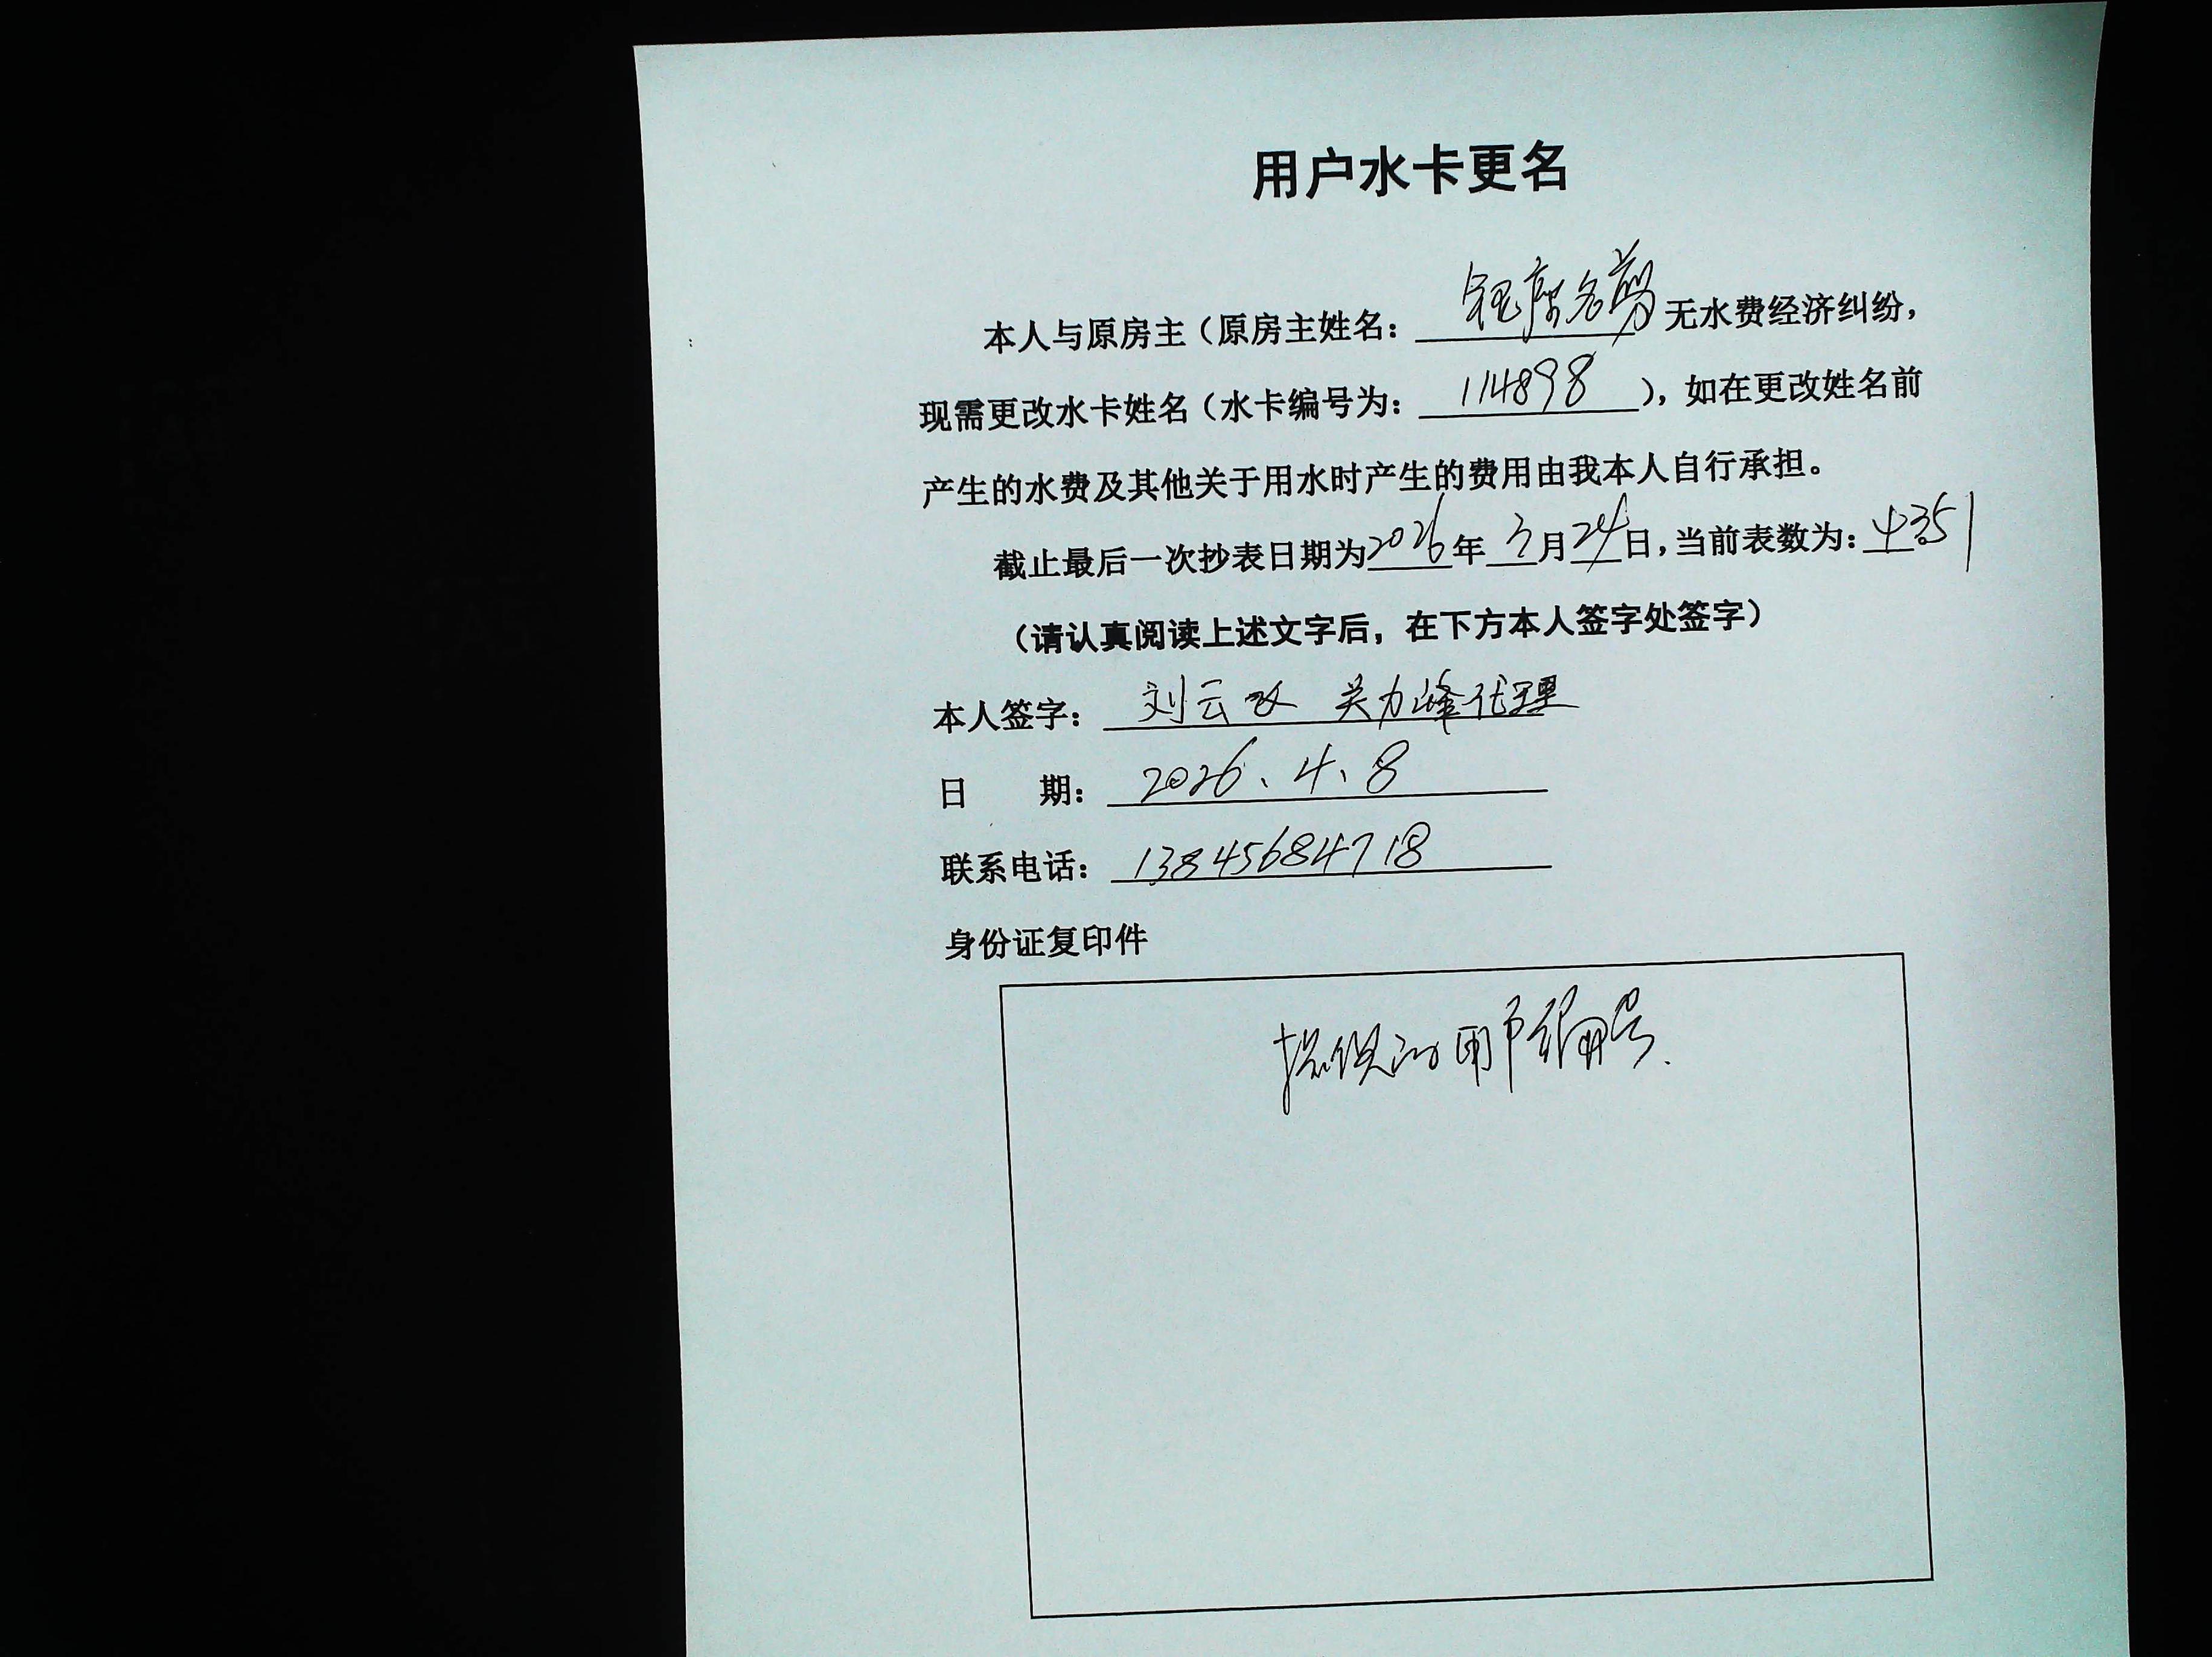 用户水卡更名
本人与原房主（原房主姓名：名剪 无水费经济纠纷，
现需更改水卡姓名（水卡编号为：114898），如在更改姓名前
产生的水费及其他关于用水时产生的费用由我本人自行承担。
截止最后一次抄表日期为2026年3月24日，当前表数为：4351
（请认真阅读上述文字后，在下方本人签字处签字）
本人签字：刘云 关力峰代理
日 期：2026、4、8
联系电话：13845684718
身份证复印件
提供的用户编号.